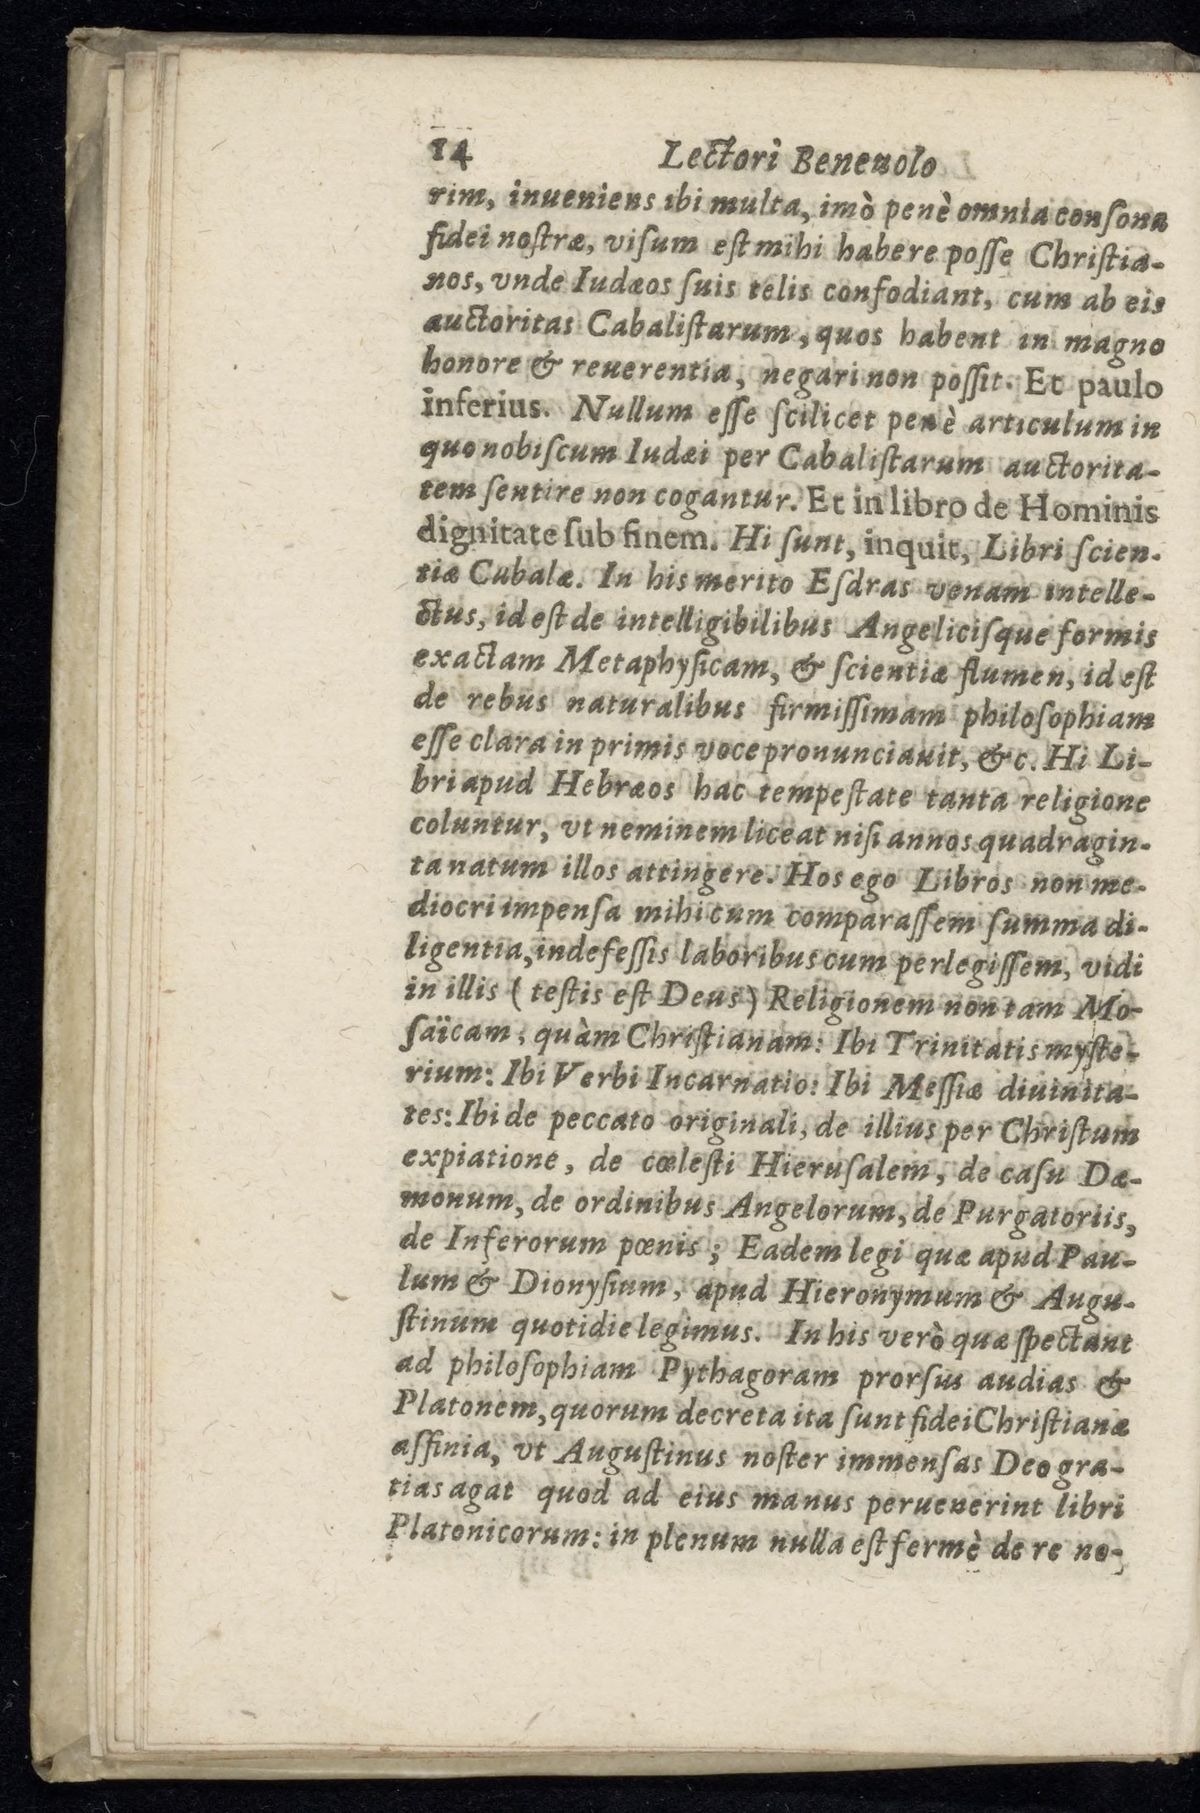 14 Lectori Beneuolo
rim, inueniens ibi multa, imò penè omnia consona
fidei nostræ, visum est mihi habere posse Christia-
nos, vnde Iudæos suis telis confodiant, cum ab eis
auctoritas Cabalistarum, quos habent in magno
honore & reuerentia, negari non possit. Et paulo
inferius. Nullum esse scilicet penè articulum in
quo nobiscum Iudæi per Cabalistarum auctorita-
tem sentire non cogantur. Et in libro de Hominis
dignitate sub finem. Hi sunt, inquit, Libri scien-
tiæ Cabalæ. In his merito Esdras venam intelle-
ctus, id est de intelligibilibus Angelicisque formis
exactam Metaphysicam, & scientiæ flumen, id est
de rebus naturalibus firmissimam philosophiam
esse clara in primis voce pronunciauit, &c. Hi Li-
bri apud Hebræos hac tempestate tanta religione
coluntur, vt neminem liceat nisi annos quadragin-
ta natum illos attingere. Hos ego Libros non me-
diocri impensa mihi cum comparassem summa di-
ligentia, indefessis laboribus cum perlegissem, vidi
in illis (testis est Deus) Religionem non tam Mo-
saïcam, quàm Christianam: Ibi Trinitatis myste-
rium: Ibi Verbi Incarnatio: Ibi Messiæ diuinita-
tes: Ibi de peccato originali, de illius per Christum
expiatione, de cœlesti Hierusalem, de casu Dæ-
monum, de ordinibus Angelorum, de Purgatoriis,
de Inferorum pœnis; Eadem legi quæ apud Pau-
lum & Dionysium, apud Hieronymum & Augu-
stinum quotidie legimus. In his verò quæ spectant
ad philosophiam Pythagoram prorsus audias &
Platonem, quorum decreta ita sunt fidei Christianæ
affinia, vt Augustinus noster immensas Deo gra-
tias agat quod ad eius manus peruenerint libri
Platonicorum: in plenum nulla est fermè de re no-